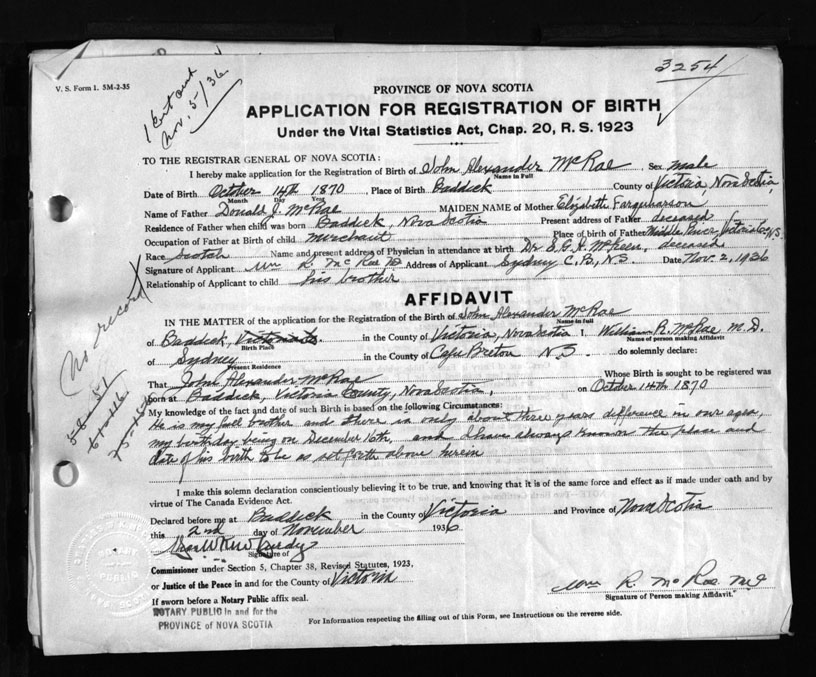 3254
V. S. Form 1. 5M-2-35
Nov. 5/36
PROVINCE OF NOVA SCOTIA
APPLICATION FOR REGISTRATION OF BIRTH
Under the Vital Statistics Act, Chap. 20, R. S. 1923
TO THE REGISTRAR GENERAL OF NOVA SCOTIA:
I hereby make application for the Registration of Birth of John Alexander McRae, Sex male
Name in Full
Date of Birth October 14th 1870, Place of Birth Baddeck County of Victoria, Nova Scotia,
Month Day Year
Name of Father Donald J. McRae MAIDEN NAME of Mother Elizabeth Farquharson
Residence of Father when child was born Baddeck, Nova Scotia Present address of Father deceased
Occupation of Father at Birth of child merchant Place of Birth of Father Middle River, Victoria Co. N.S.
Race Scotch Name and present address of Physician in attendance at birth Dr. S. G. A. McKeen, deceased
Signature of Applicant Wm R. McRae MD Address of Applicant Sydney C.B., N.S. Date Nov. 2, 1936
Relationship of Applicant to child his brother
AFFIDAVIT
IN THE MATTER of the application for the Registration of the Birth of John Alexander McRae
Name in full
of Baddeck, Victoria Co. in the County of Victoria, Nova Scotia I, William R. McRae M.D.
Birth Place Name of person making Affidavit
of Sydney in the County of Cape Breton N.S. do solemnly declare:
Present Residence
That John Alexander McRae Whose Birth is sought to be registered was
born at Baddeck, Victoria County, Nova Scotia, on October 14th 1870
My knowledge of the fact and date of such Birth is based on the following Circumstances:
He is my full brother and there is only about three years difference in our ages,
my birthday being on December 16th, and I have always known the place and
date of his birth to be as set forth above herein
No record
I make this solemn declaration conscientiously believing it to be true, and knowing that it is of the same force and effect as if made under oath and by
virtue of The Canada Evidence Act.
Declared before me at Baddeck in the County of Victoria and Province of Nova Scotia
this 2nd day of November 1936
Signature of
Commissioner under Section 5, Chapter 38, Revised Statutes, 1923,
or Justice of the Peace in and for the County of Victoria
Wm R. McRae MD
Signature of Person making Affidavit.
If sworn before a Notary Public affix seal.
NOTARY PUBLIC in and for the
PROVINCE of NOVA SCOTIA
For Information respecting the filling out of this Form, see Instructions on the reverse side.